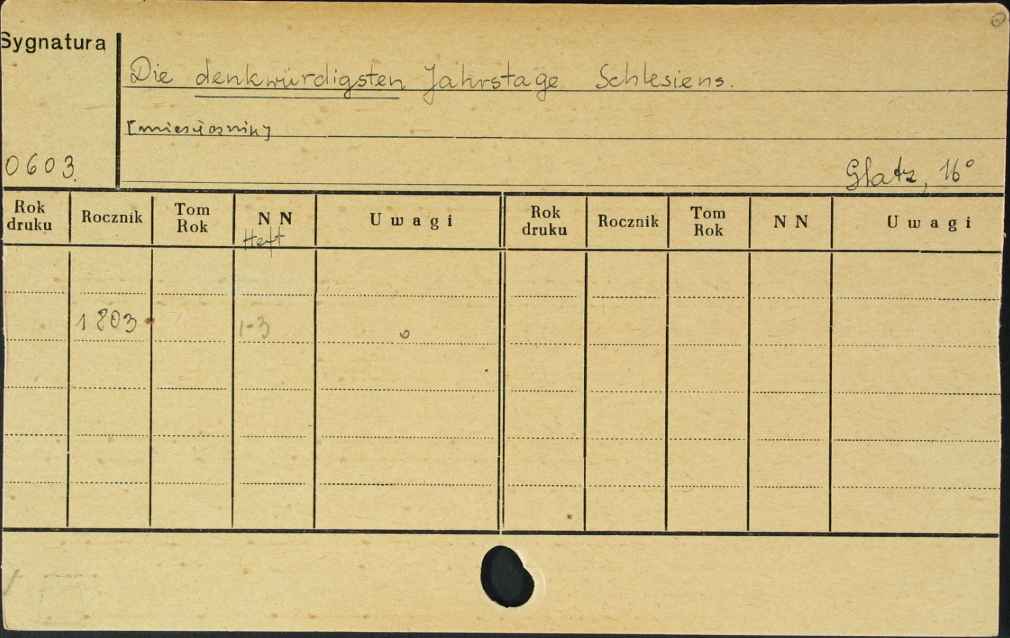 Sygnatura
Die denkwürdigsten Jahrstage Schlesiens.
[miesięcznik]
0603.
Glatz, 16°
Rok druku Rocznik Tom Rok N N Uwagi Rok druku Rocznik Tom Rok N N Uwagi
Heft
1803 1-3